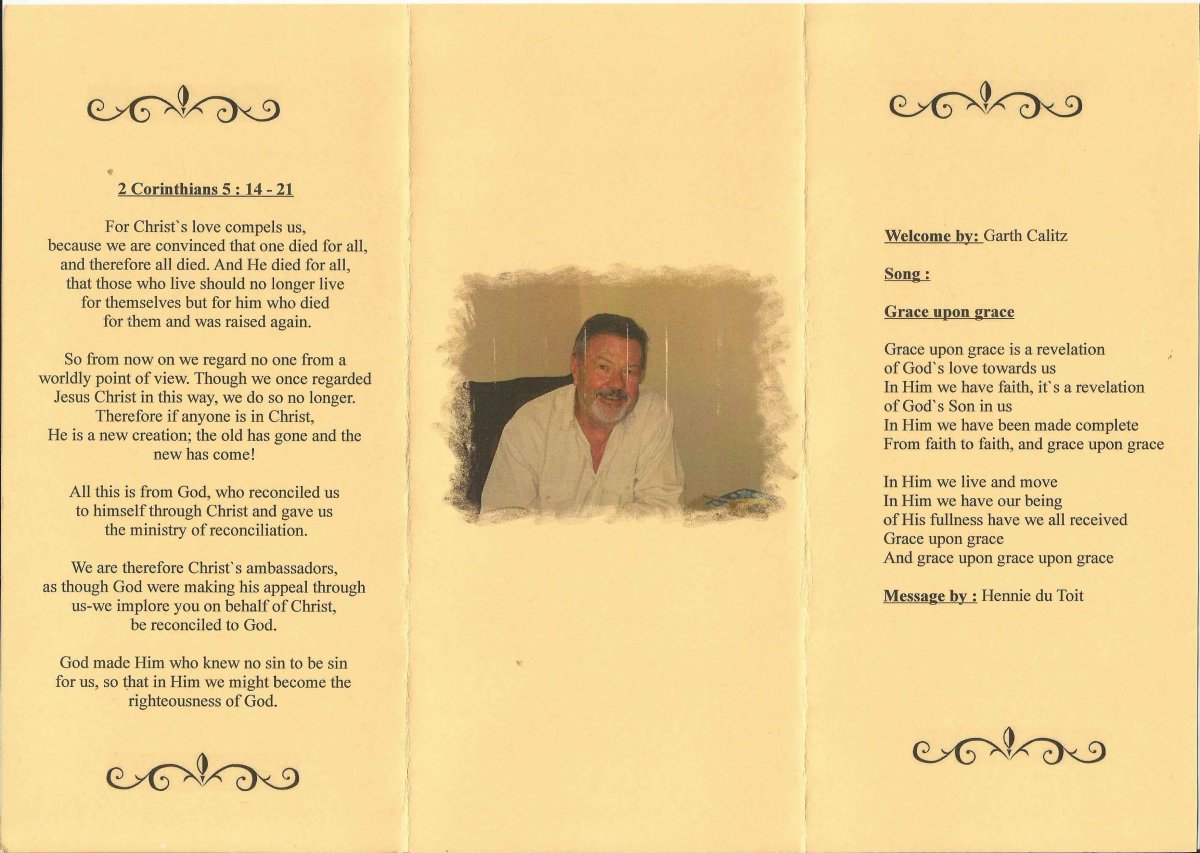 2 Corinthians 5 : 14 - 21
For Christ`s love compels us,
because we are convinced that one died for all,
and therefore all died. And He died for all,
that those who live should no longer live
for themselves but for him who died
for them and was raised again.
So from now on we regard no one from a
worldly point of view. Though we once regarded
Jesus Christ in this way, we do so no longer.
Therefore if anyone is in Christ,
He is a new creation; the old has gone and the
new has come!
All this is from God, who reconciled us
to himself through Christ and gave us
the ministry of reconciliation.
We are therefore Christ`s ambassadors,
as though God were making his appeal through
us-we implore you on behalf of Christ,
be reconciled to God.
God made Him who knew no sin to be sin
for us, so that in Him we might become the
righteousness of God.
Welcome by: Garth Calitz
Song :
Grace upon grace
Grace upon grace is a revelation
of God`s love towards us
In Him we have faith, it`s a revelation
of God`s Son in us
In Him we have been made complete
From faith to faith, and grace upon grace
In Him we live and move
In Him we have our being
of His fullness have we all received
Grace upon grace
And grace upon grace upon grace
Message by : Hennie du Toit